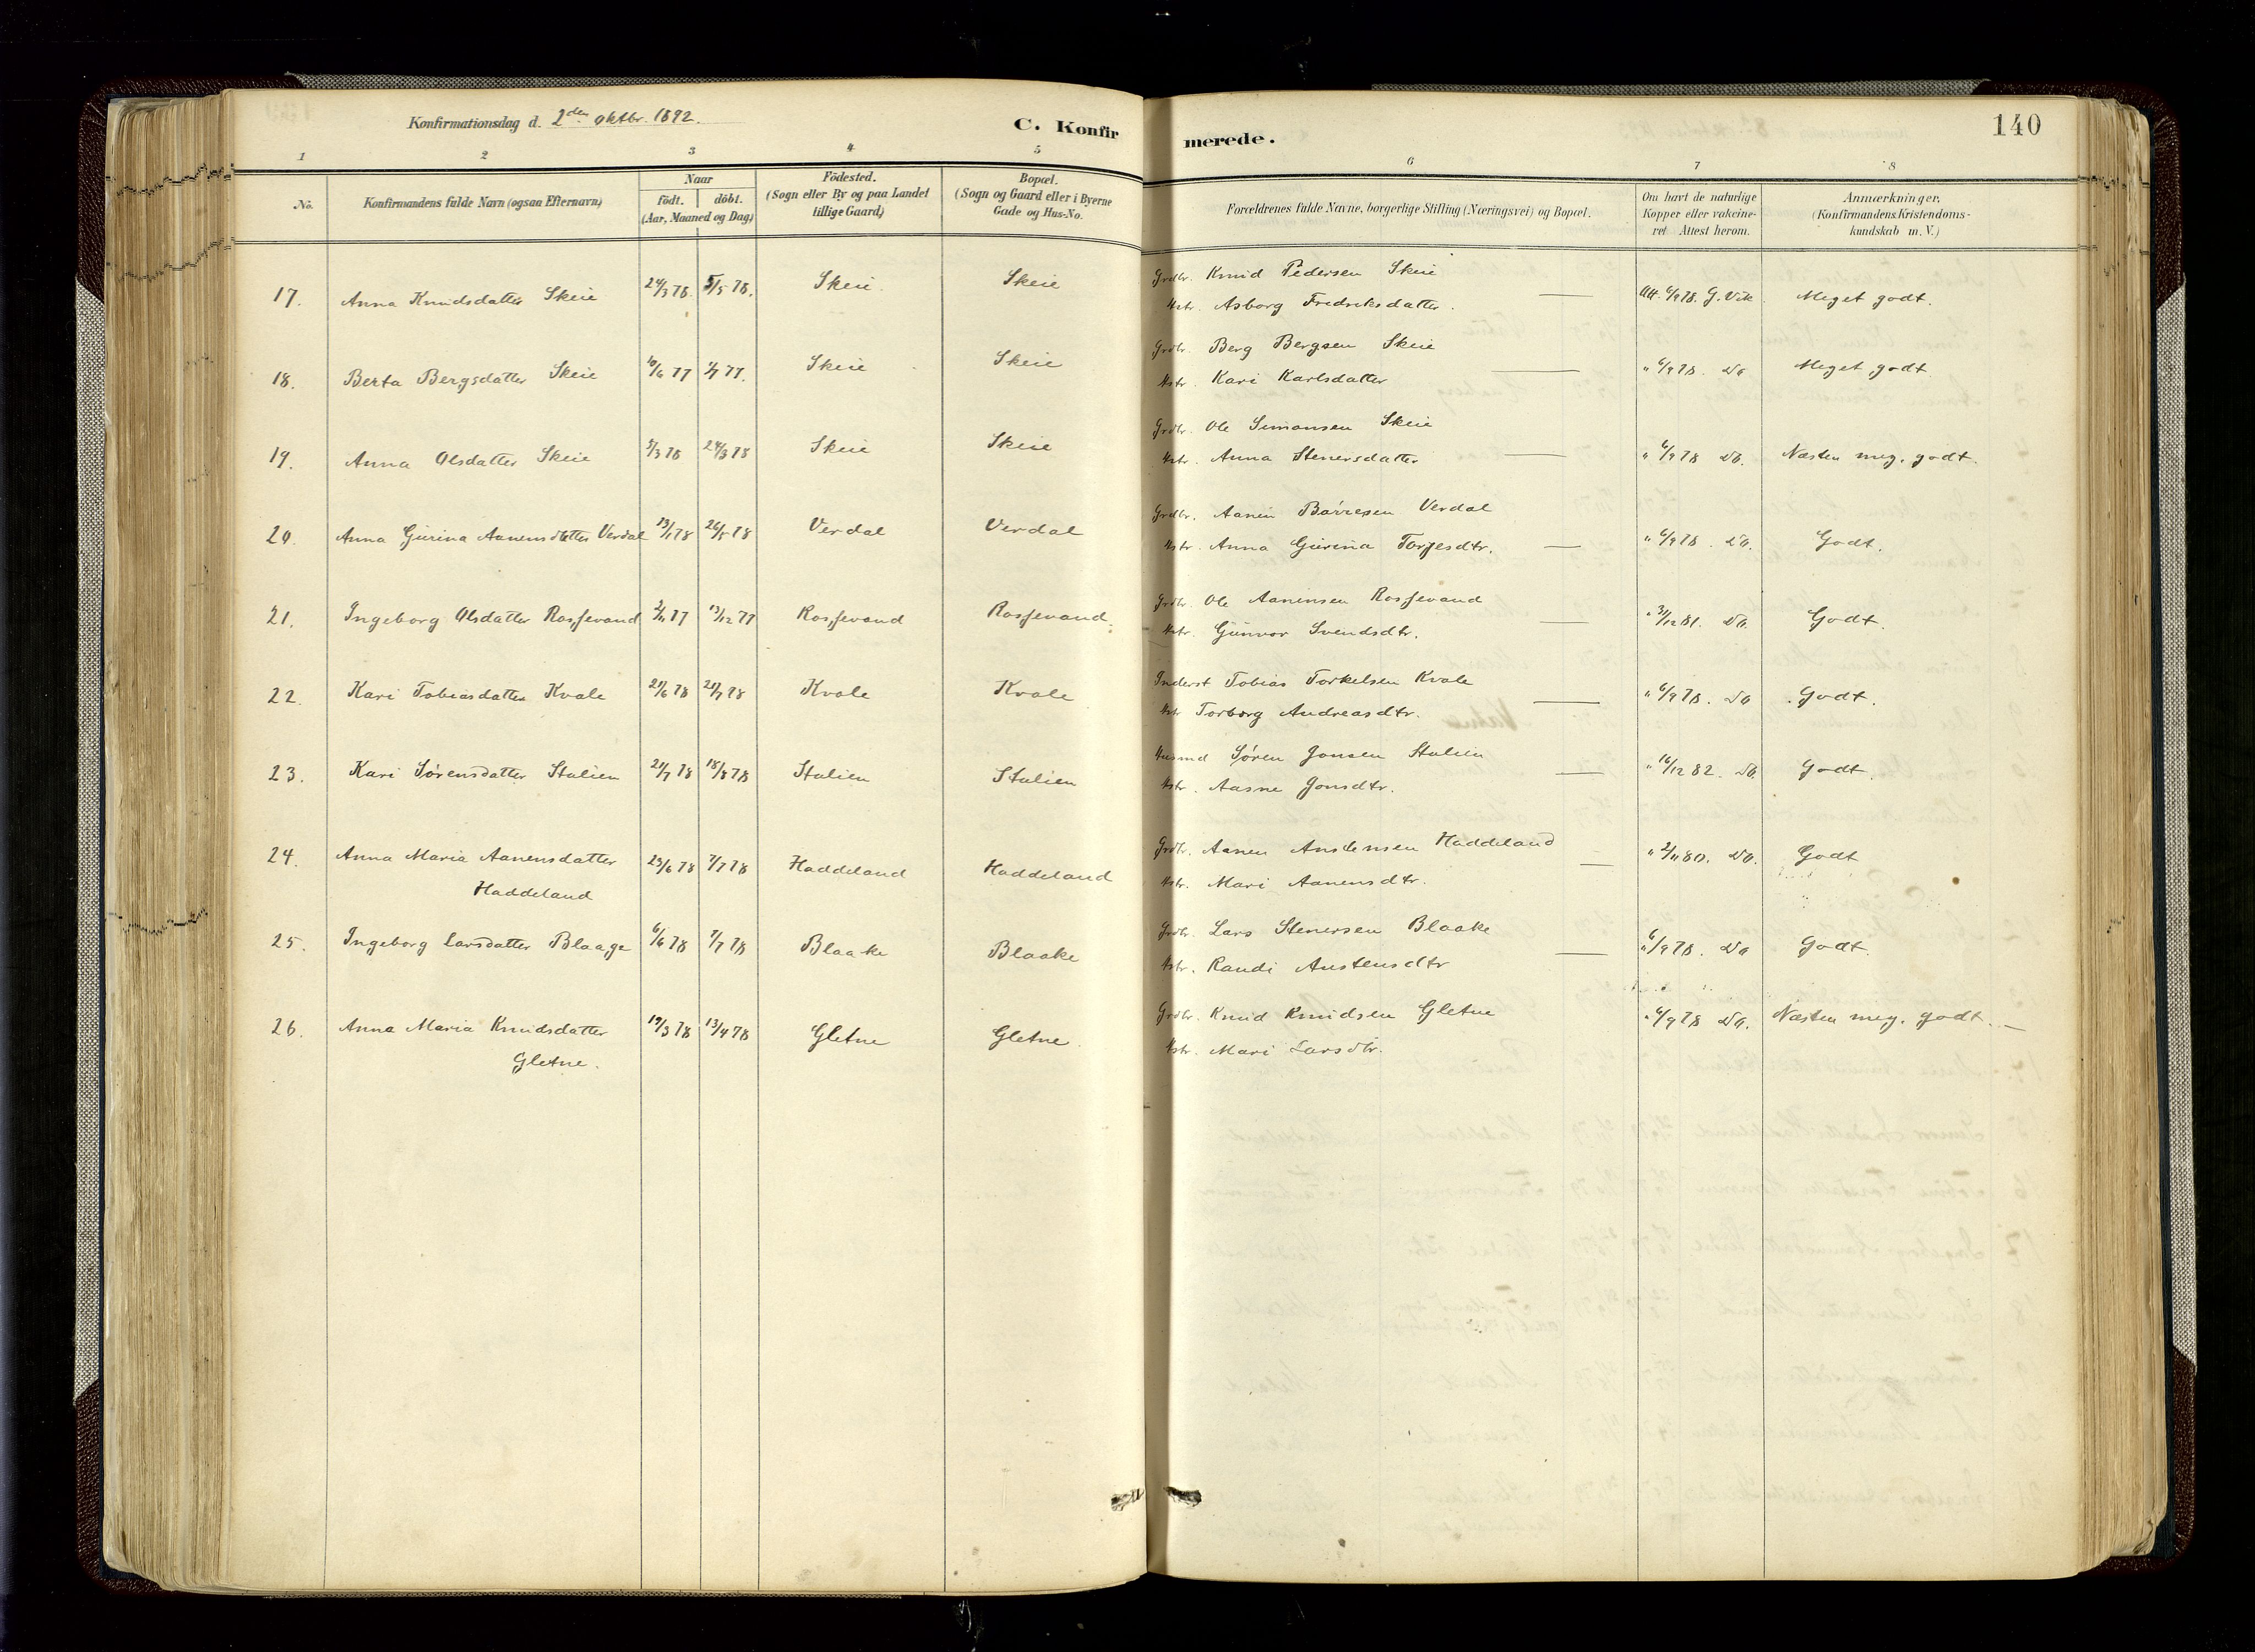 Konfirmationsdag d. 2den oktbr. 1892.
C. Konfirmerede.
140
1 2 3 4 5 6 7 8
No. Konfirmandens fulde Navn (ogsaa Efternavn) Naar født. døbt. (Aar, Maaned og Dag) Fødested. (Sogn eller By og paa Landet tillige Gaard) Bopæl. (Sogn og Gaard eller i Byerne Gade og Hus-No. Forældrenes fulde Navne, borgerlige Stilling (Næringsvei) og Bopæl. Om havt de naturlige Kopper eller vakcineret Attest herom. Anmærkninger. (Konfirmandens Kristendomskundskab m. V.)
17. Anna Knudsdatter Skeie 24/3 78. 5/5 78. Skeie Skeie Grdbr. Knud Pedersen Skeie
Hstr. Asborg Fredriksdatter. Att. 6/9 78. G. Vik. Meget godt.
18. Berta Bergsdatter Skeie 10/6 77 1/7 77. Skeie Skeie Grdbr. Berg Bergsen Skeie
Hstr. Kari Karlsdatter " 6/9 78. Do Meget godt
19. Anna Olsdatter Skeie 5/3 78 24/3 78 Skeie Skeie Grdbr. Ole Simonsen Skeie
Hstr. Anna Stenersdatter " 6/9 78 Do. Næsten meg. godt.
20. Anna Gurina Aanensdatter Verdal 13/1 78 26/5 78 Verdal Verdal Grdbr. Aanen Børresen Verdal
Hstr. Anna Gurina Torjesdtr. " 6/9 78. Do. Godt.
21. Ingeborg Olsdatter Rosfevand 2/11 77 13/12 77 Rosfevand Rosfevand. Grdbr. Ole Aanensen Rosfevand
Hstr. Gunvor Svendsdtr. " 31/12 81. Do. Godt.
22. Kari Tobiasdatter Kvale 21/6 78 21/7 78 Kvale Kvale Inderst Tobias Torkelsen Kvale
Hstr Torborg Andreasdtr. " 6/9 78. Do Godt.
23. Kari Sørensdatter Stalien 21/7 78 18/8 78 Stalien Stalien Husmd Søren Jonsen Stalien
Hstr. Aasne Jonsdtr. " 16/12 82. Do. Godt.
24. Anna Maria Aanensdatter
Haddeland 23/6 78 7/7 78 Haddeland Haddeland Grdbr. Aanen Anstensen Haddeland
Hstr. Mari Aanensdtr. " 2/11 80. Do. Godt
25. Ingeborg Larsdatter Blaage 6/6 78 7/7 78 Blaake Blaake Grdbr. Lars Stenersen Blaake
Hstr. Randi Anstensdtr " 6/9 78. Do Godt.
26. Anna Maria Knudsdatter
Gletne. 19/3 78 13/4 78 Gletne Gletne. Grdbr. Knud Knudsen Gletne
Hstr. Mari Larsdtr. " 6/9 78 Do. Næsten meg. godt.